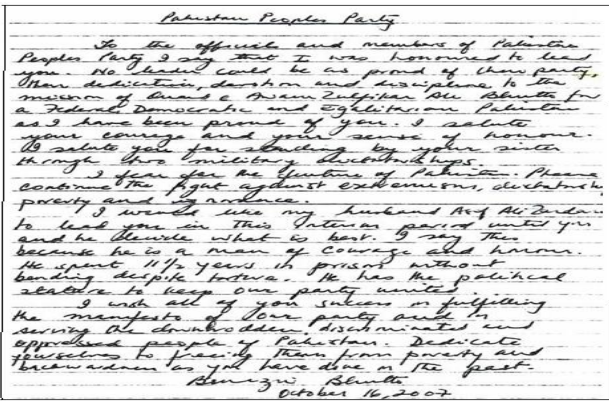 Pakistan Peoples Party
To the officials and members of Pakistan
Peoples Party I say that I was honoured to lead
you. No leader could be as proud of their party,
their dedication, devotion and discipline to the
mission of Quaid e Awam Zulfikar Ali Bhutto for
a Federal Democratic and Egalitarian Pakistan
as I have been proud of you. I salute
your courage and your sense of honour.
I salute you for standing by your sister
through two military dictatorships.
I fear for the future of Pakistan. Please
continue the fight against extremism, dictatorship
poverty and ignorance.
I would like my husband Asif Ali Zardari
to lead you in this interim period until you
and he decide what is best. I say this
because he is a man of courage and honour.
He spent 11½ years in prison without
bending despite torture. He has the political
stature to keep our party united.
I wish all of you success in fulfilling
the manifesto of our party and in
serving the downtrodden, discriminated and
oppressed people of Pakistan. Dedicate
yourselves to freeing them from poverty and
backwardness as you have done in the past.
Benazir Bhutto
October 16, 2007